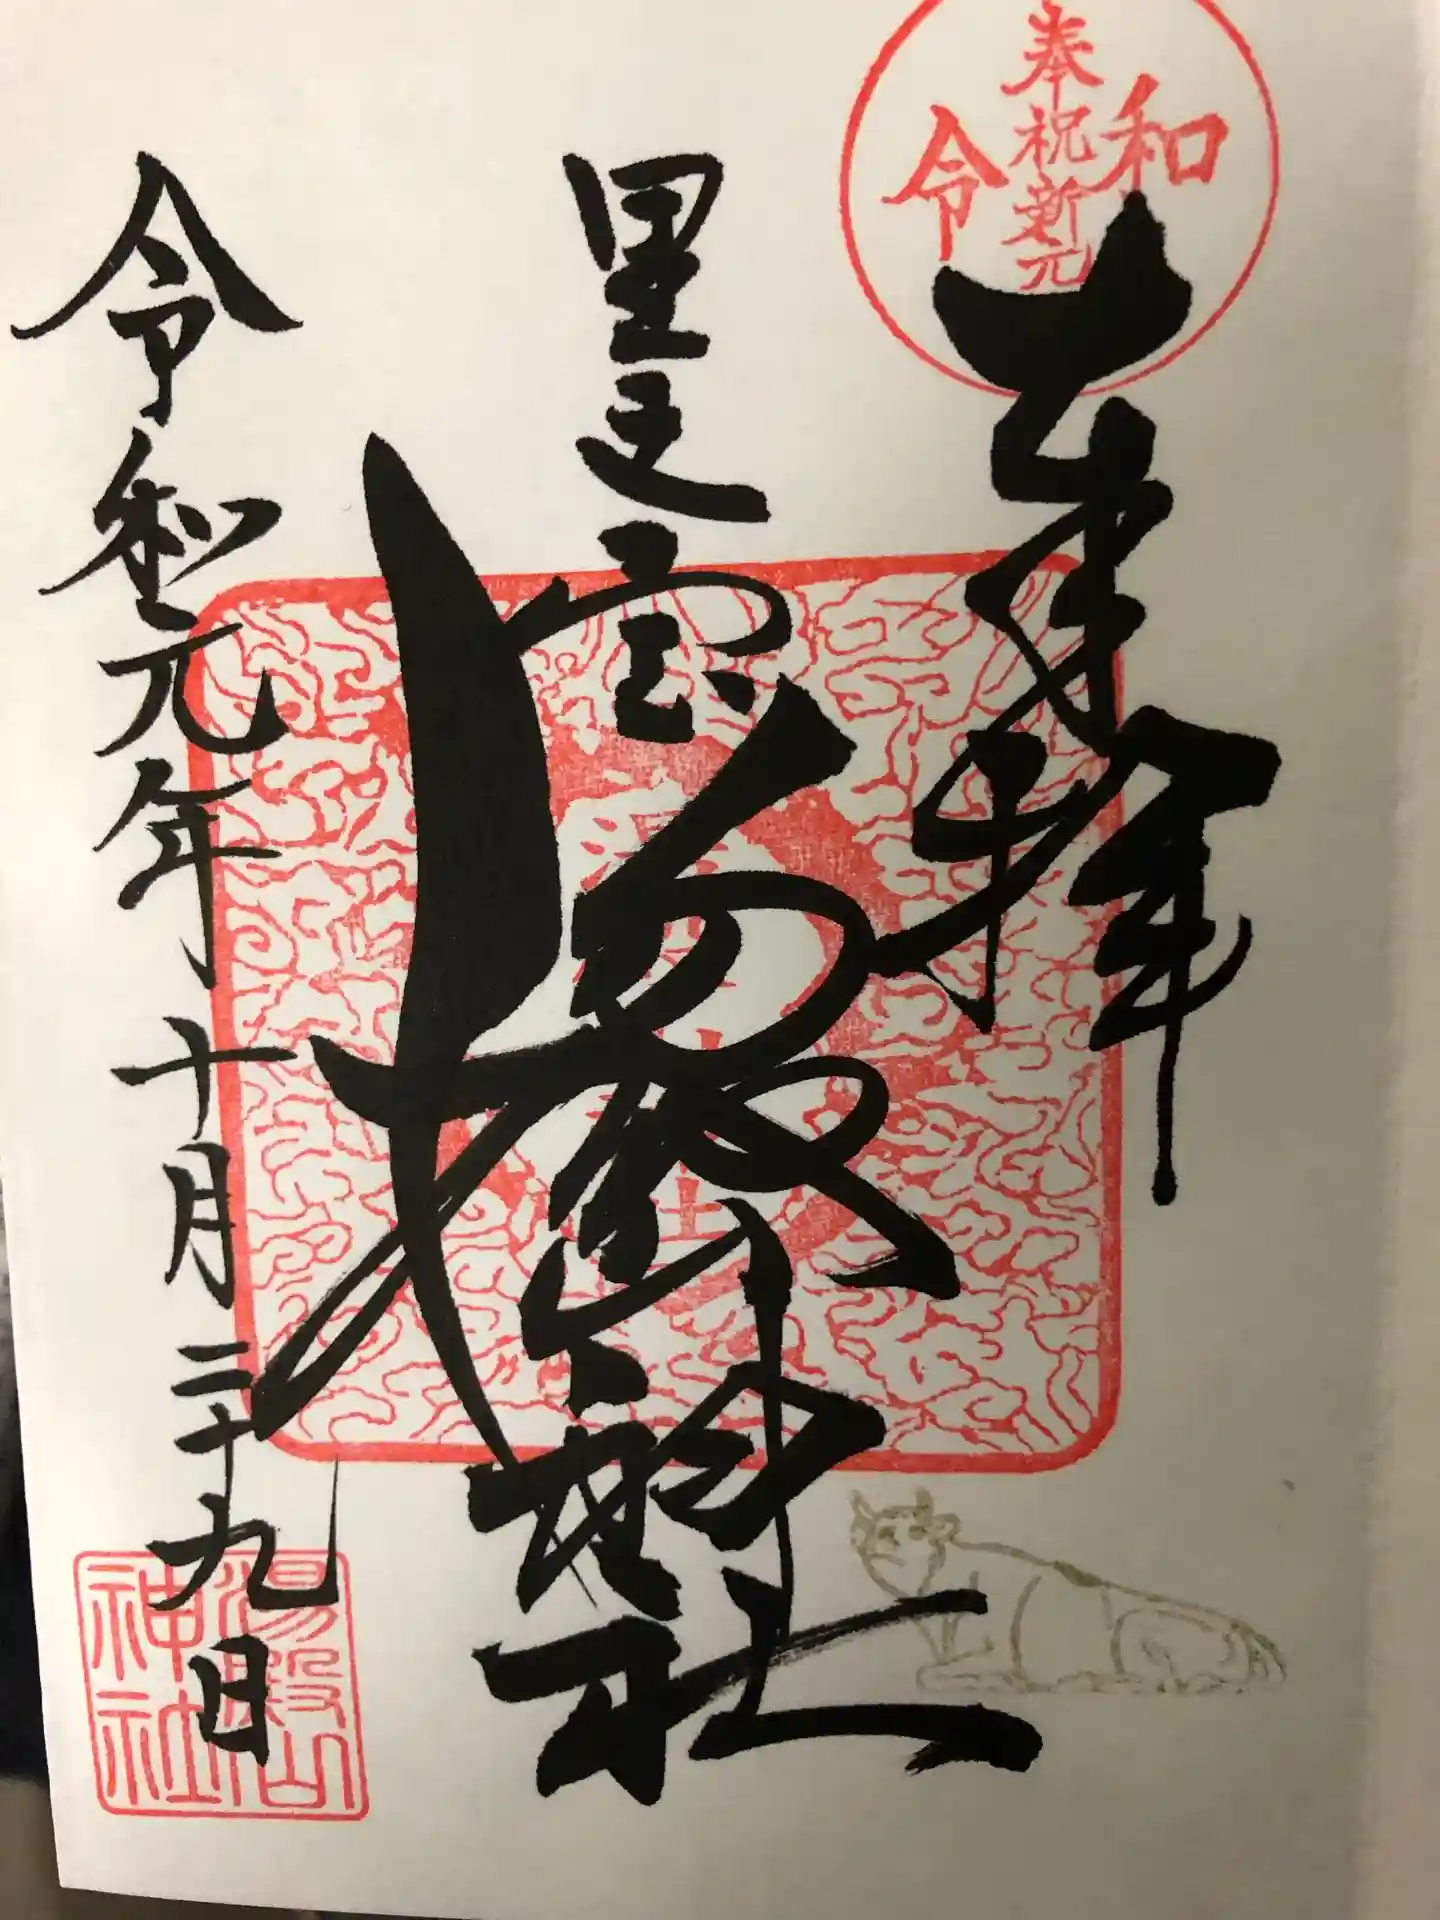 奉祝新元
令和
奉拝
里之宮
湯殿山神社
令和元年十月二十九日
湯殿山
神社